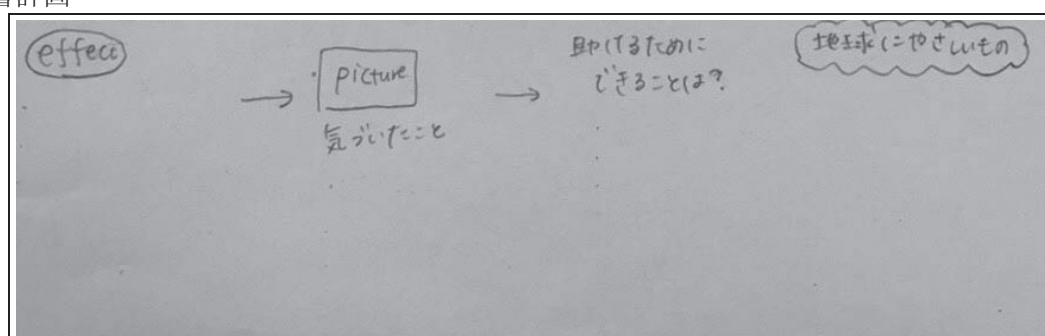 effect
→
picture
気づいたこと
→
助けるために
できることは?
地球にやさしいもの